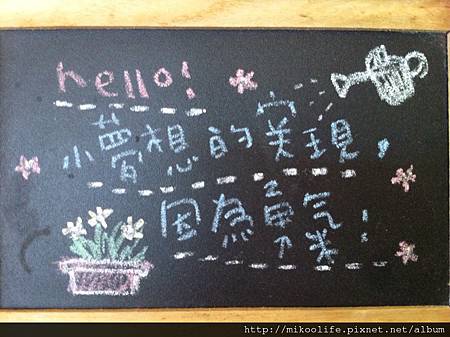 hello!
小夢想的実現,
因為勇氣!
http://mikoolife.pixnet.net/album